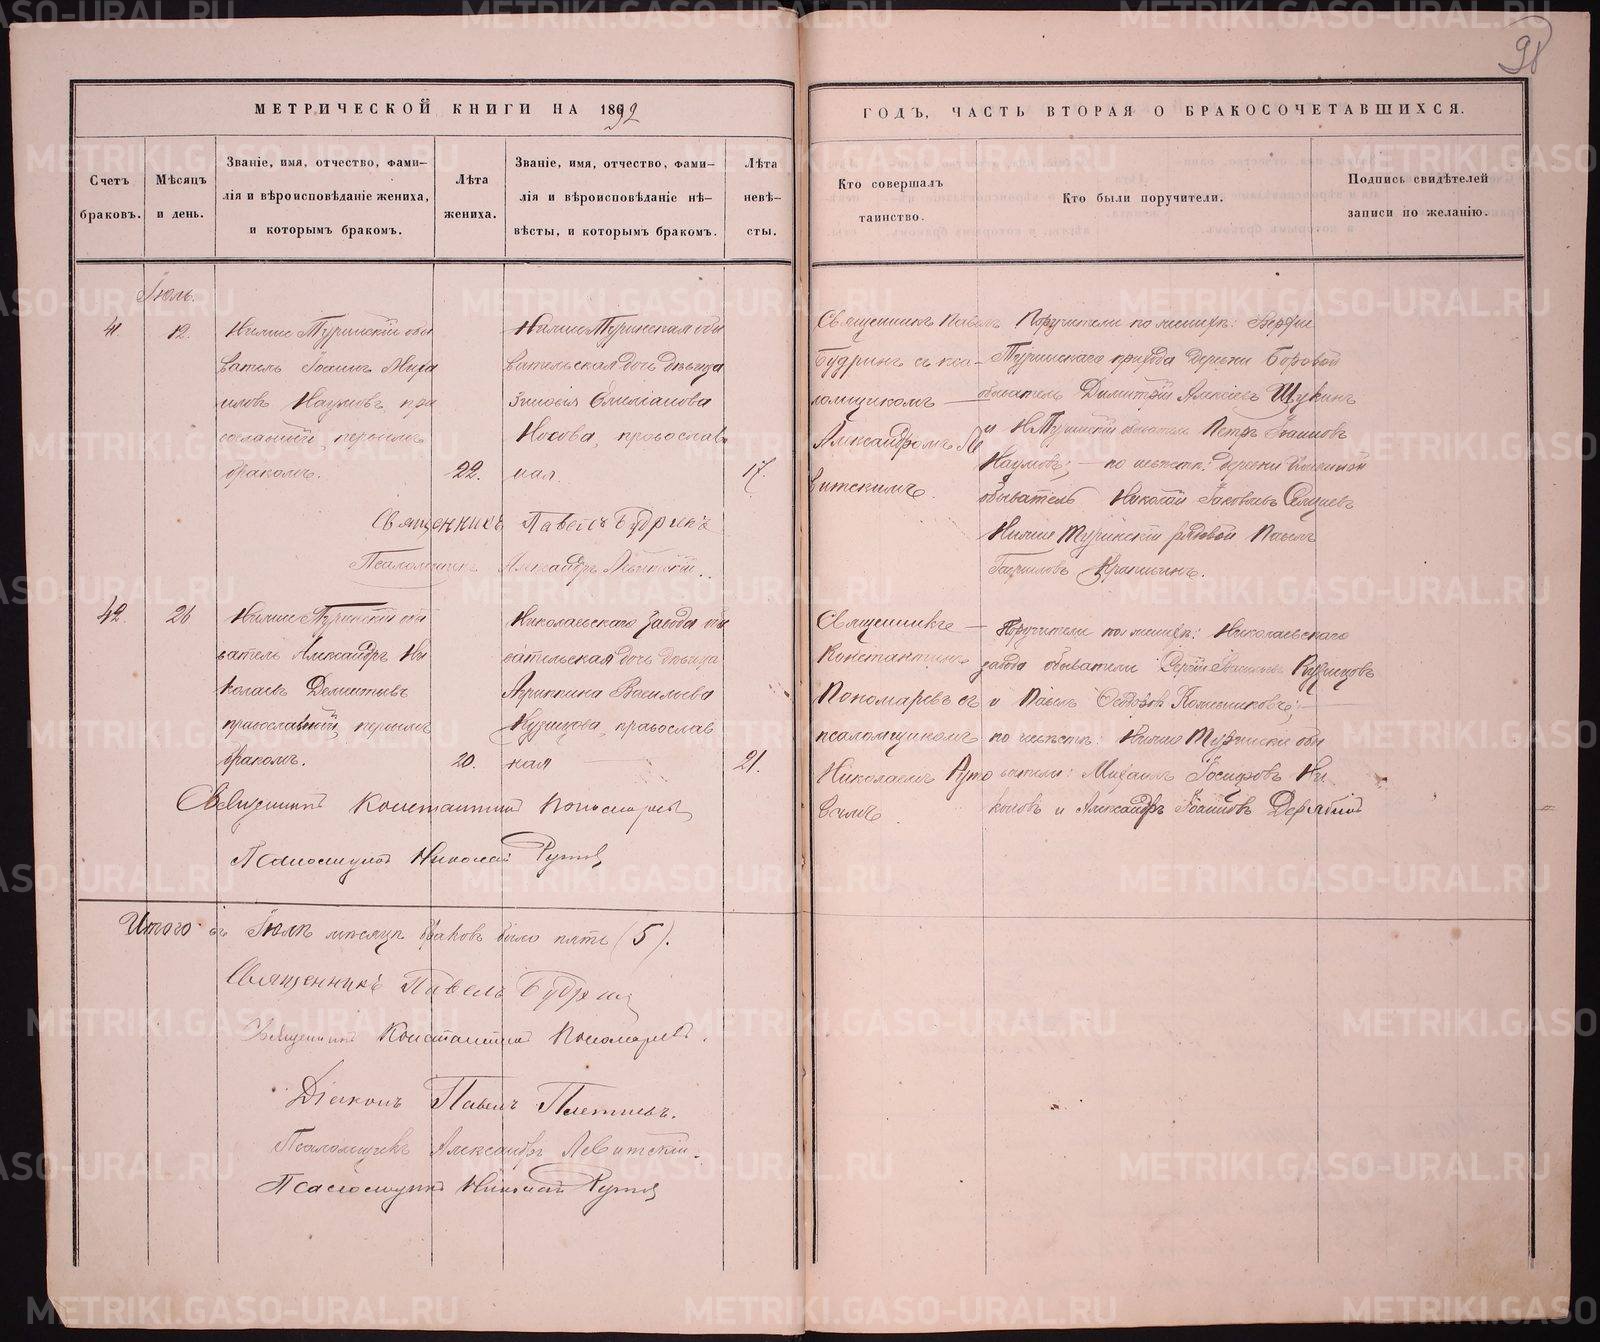 98
МЕТРИЧЕСКОЙ КНИГИ НА 1892
ГОДЪ, ЧАСТЬ ВТОРАЯ О БРАКОСОЧЕТАВШИХСЯ.
Счетъ
браковъ.
Мѣсяцъ
и день.
Званіе, имя, отчество, фами-
лія и вѣроисповѣданіе жениха,
и которымъ бракомъ.
Лѣта
жениха.
Званіе, имя, отчество, фами-
лія и вѣроисповѣданіе не-
вѣсты, и которымъ бракомъ.
Лѣта
невѣ-
сты.
Кто совершалъ
таинство.
Кто были поручители.
Подпись свидѣтелей
записи по желанію.
Іюль.
41. 12.
Нижне Туринскій обы
ватель Іоаннъ Миха
иловъ Наумовъ, пра
вославный, первымъ
бракомъ.
22.
Нижне Туринская обы
вательская дочь дѣвица
Зиновія Емиліанова
Носова, православ
ная.
17.
Священникъ Павелъ
Будринъ съ пса-
ломщикомъ
Александромъ Ле
витскимъ.
Поручители по женихѣ: Верхне
Туринскаго прихода деревни Боровой
обыватель Димитрій Алексѣевъ Щукинъ
и Н Туринскій обыватель Петръ Іоанновъ
Наумовъ; — по невѣстѣ: деревни
обыватель Николай Іаковлевъ
Нижне Туринскій рядовой Павелъ
Гавриловъ
Священникъ Павелъ Будринъ
Псаломщикъ Александръ Левитскій.
42. 26
Нижне Туринскій обы
ватель Александръ Ни
колаевъ Дементьевъ
православный, первымъ
бракомъ.
20.
Николаевскаго завода обы
вательская дочь дѣвица
Агриппина Васильева
Кузнецова, православ
ная
21.
Священникъ —
Константинъ
Пономаревъ съ
псаломщикомъ
Николаемъ Руто
вымъ
Поручители по женихѣ: Николаевскаго
завода обыватели Сергій Васильевъ Кузнецовъ
и Павелъ Ѳедоровъ
по невѣстѣ: Нижне Туринскіе обы
ватели: Михаилъ Іосифовъ Ни
коновъ и Александръ Іоанновъ Дерябинъ
Священникъ Константинъ Пономаревъ
Псаломщикъ Николай Рутовъ
Итого въ Іюлѣ мѣсяцѣ браковъ было пять (5).
Священникъ Павелъ Будринъ
Священникъ Константинъ Пономаревъ.
Діаконъ Павелъ Плетневъ.
Псаломщикъ Александръ Левитскій.
Псаломщикъ Николай Рутовъ
METRIKI.GASO-URAL.RU